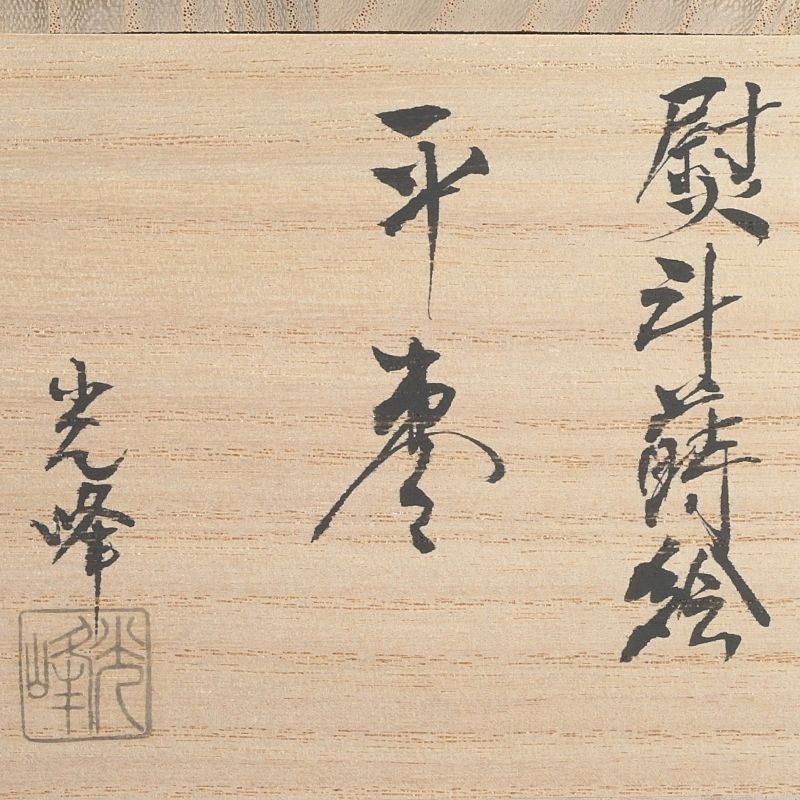 熨斗蒔絵
平棗
光峰
光峰